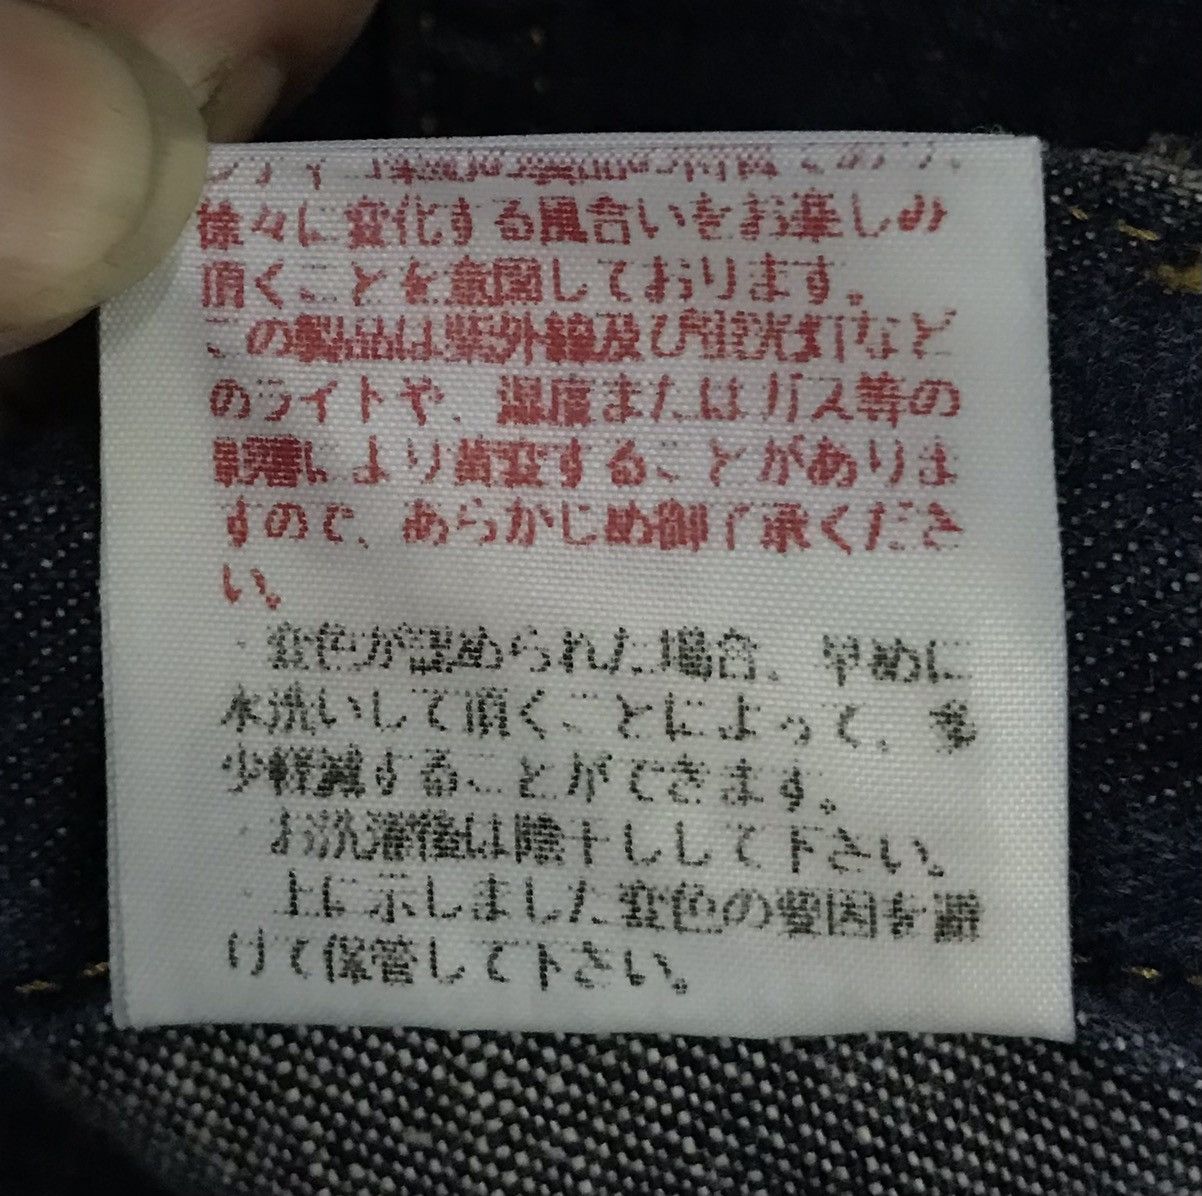 ンディゴ染料の製品の特質であり、
徐々に変化する風合いをお楽しみ
頂くことを意図しております。
この製品は紫外線及び蛍光灯など
のライトや、温度またはガス等の
影響により黄変することがありま
すので、あらかじめ御了承くださ
い。
・変色が認められた場合、早めに
水洗いして頂くことによって、多
少軽減することができます。
・お洗濯後は陰干しして下さい。
・上に示しました変色の要因を避
けて保管して下さい。